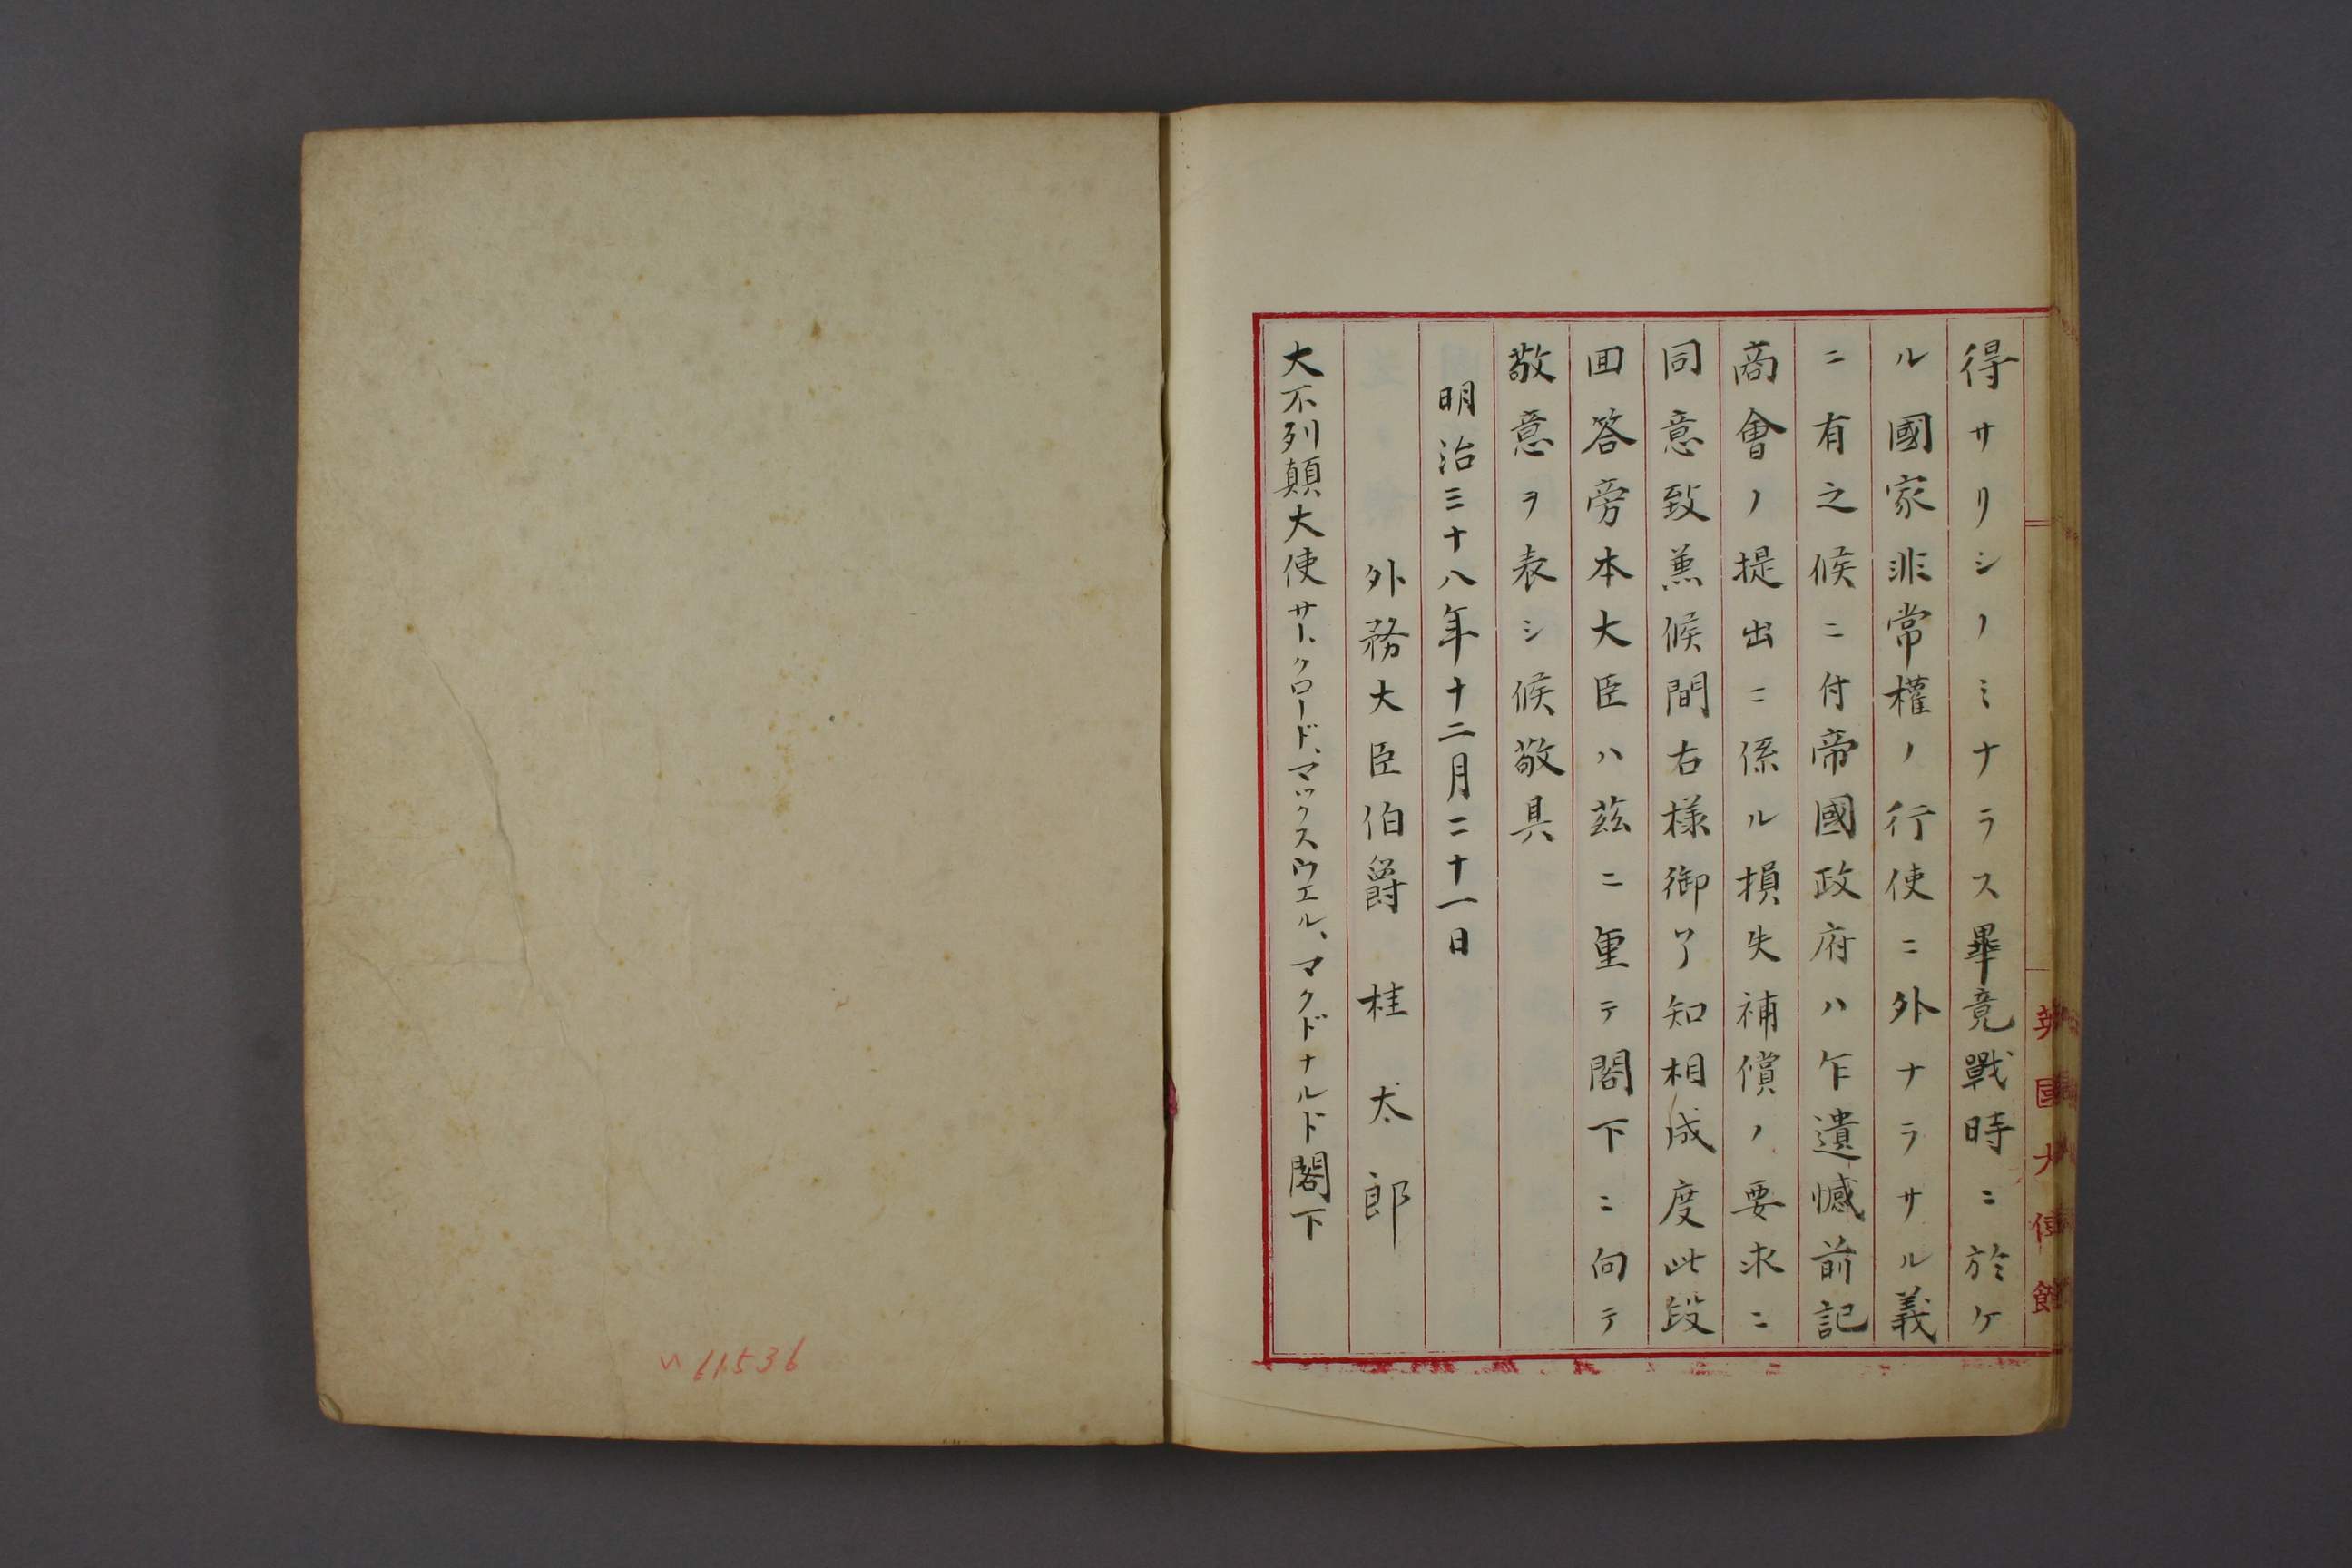 英國大使館
得サリシノミナラス畢竟戰時ニ於ケ
ル國家非常權ノ行使ニ外ナラサル義
ニ有之候ニ付帝國政府ハ乍遺憾前記
商會ノ提出ニ係ル損失補償ノ要求ニ
同意致兼候間右樣御了知相成度此段
回答旁本大臣ハ茲ニ重テ閣下ニ向テ
敬意ヲ表シ候敬具
明治三十八年十二月二十一日
外務大臣伯爵 桂太郎
大不列顛大使サー、クロード、マックスウエル、マクドナルド閣下
61536